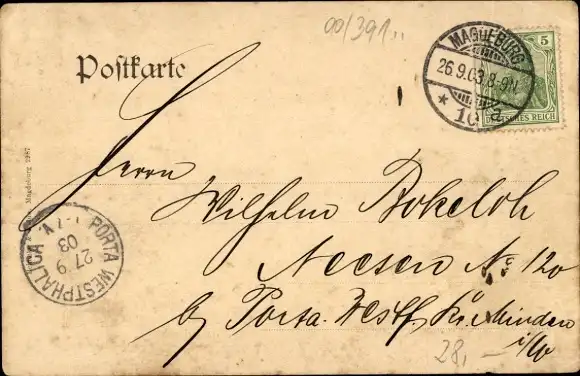 00/391..
Postkarte
MAGDEBURG
26.9.03. 8-9N.
* 10 a
5
DEUTSCHES REICH
Herrn
Wilhelm Bokeloh
Neesen No 120
b/ Porta. Westf. Kr. Minden
i/W
28,-
Magdeburg 2987
PORTA WESTPHALICA
27 9
03